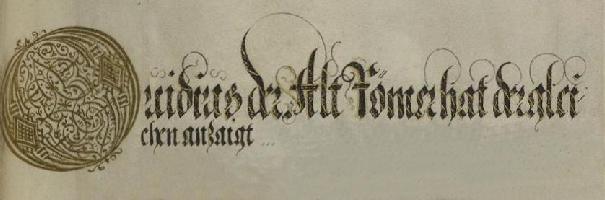 Ouidius der Alt Römer hat derglei
chen anzaigt ...